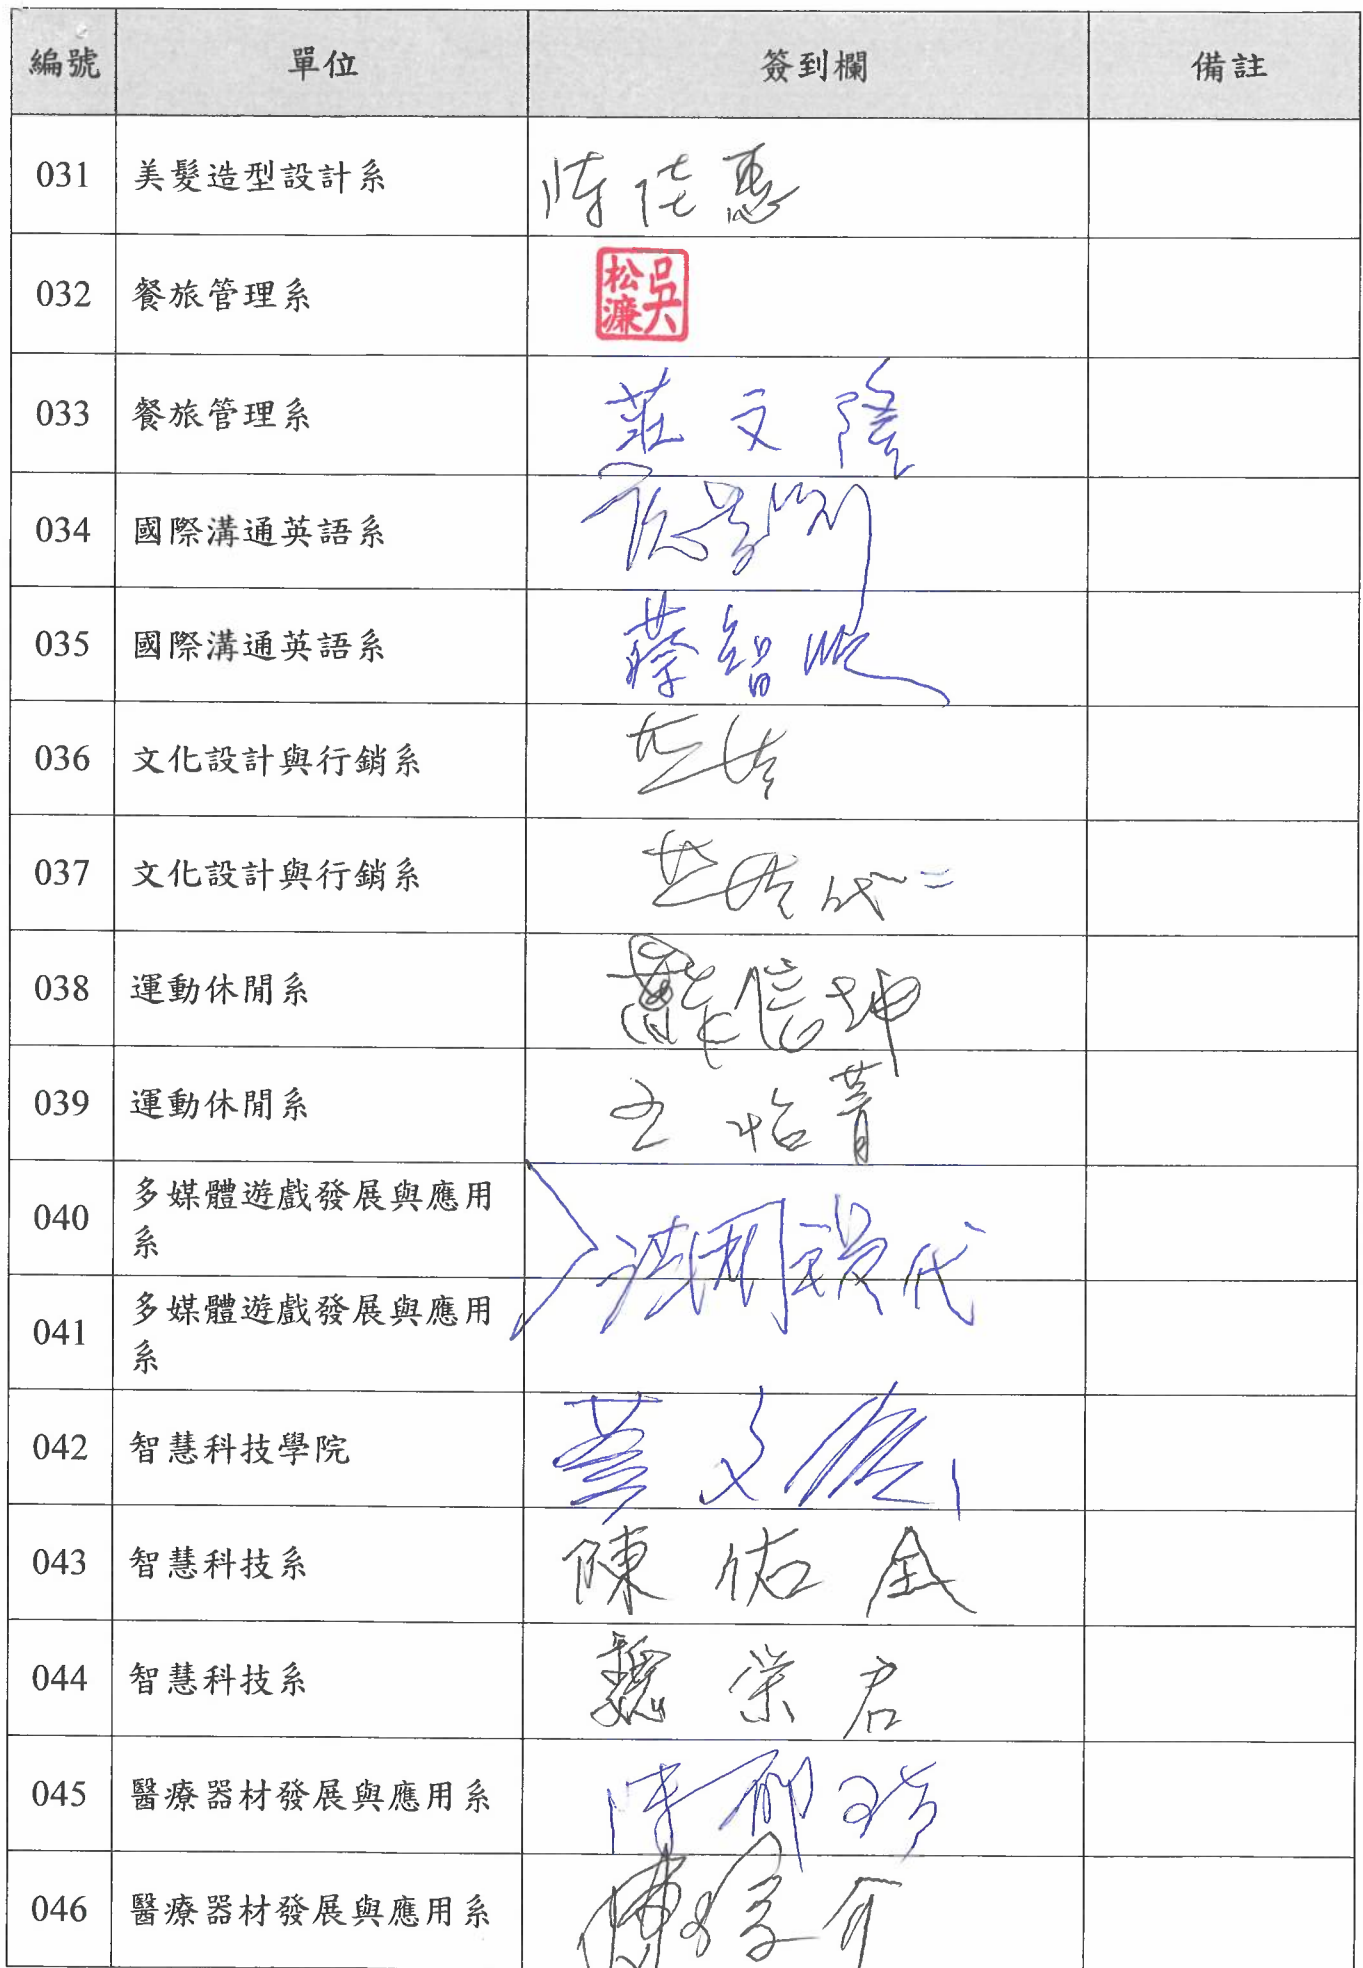 編號 單位 簽到欄 備註
031 美髮造型設計系 陳佳惠
032 餐旅管理系 吳松濂
033 餐旅管理系 莊文隆
034 國際溝通英語系
035 國際溝通英語系 蔡智
036 文化設計與行銷系
037 文化設計與行銷系 代
038 運動休閒系 蘇信坤
039 運動休閒系 王怡菁
040 多媒體遊戲發展與應用
系
041 多媒體遊戲發展與應用
系
代
042 智慧科技學院 文
043 智慧科技系 陳佑全
044 智慧科技系 魏榮君
045 醫療器材發展與應用系 陳郁
046 醫療器材發展與應用系 介